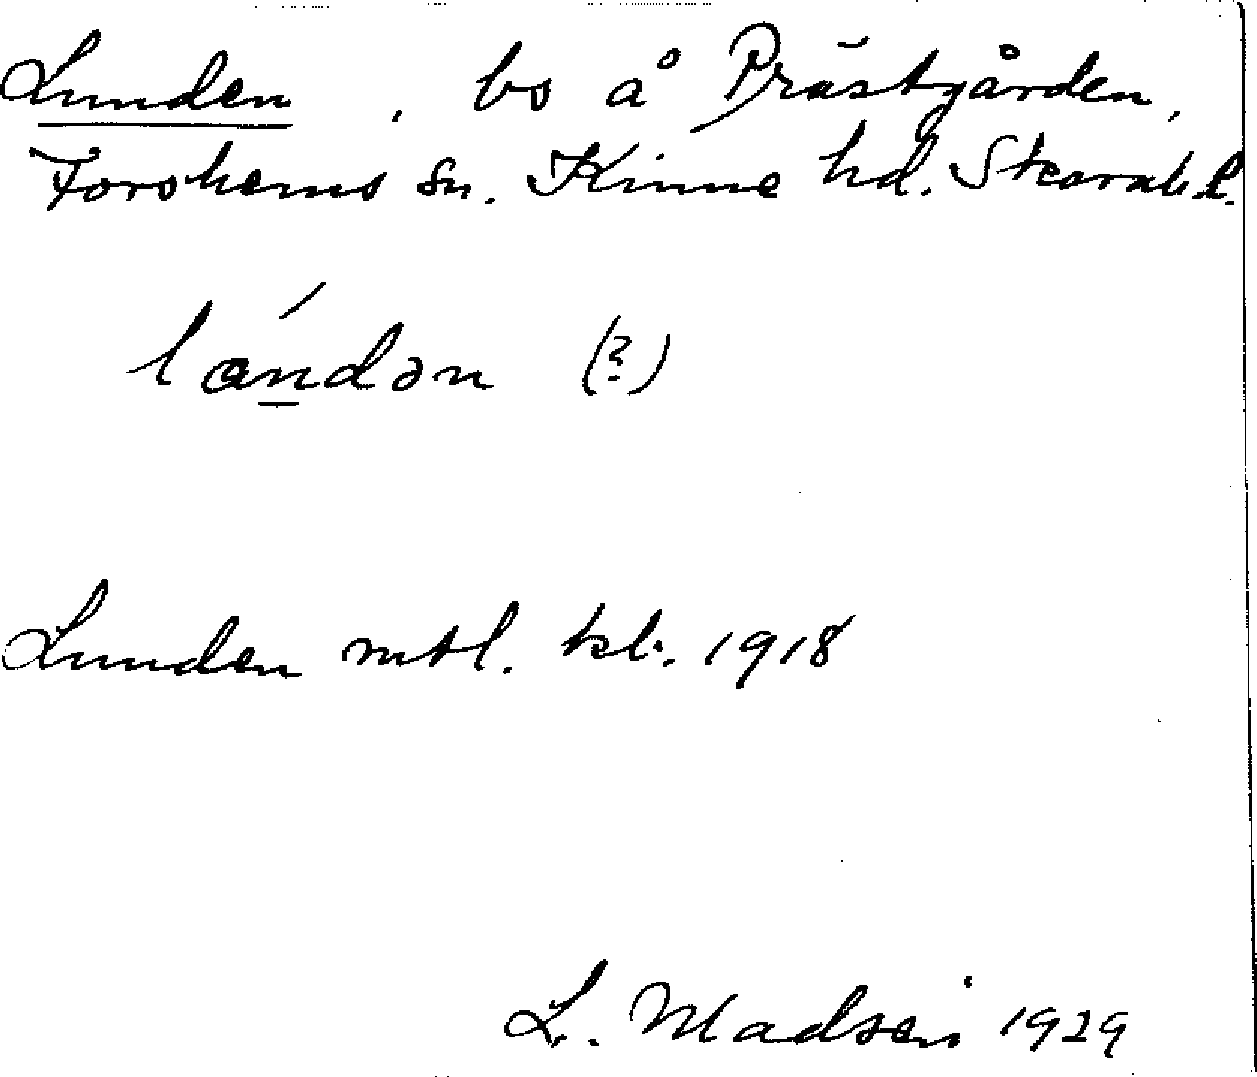 Lunden, bs å Prästgården,
Forshems sn. Kinne hd. Skarab. l.
lándən (?)
Lunden mtl. kb. 1918
L. Madsén 1929